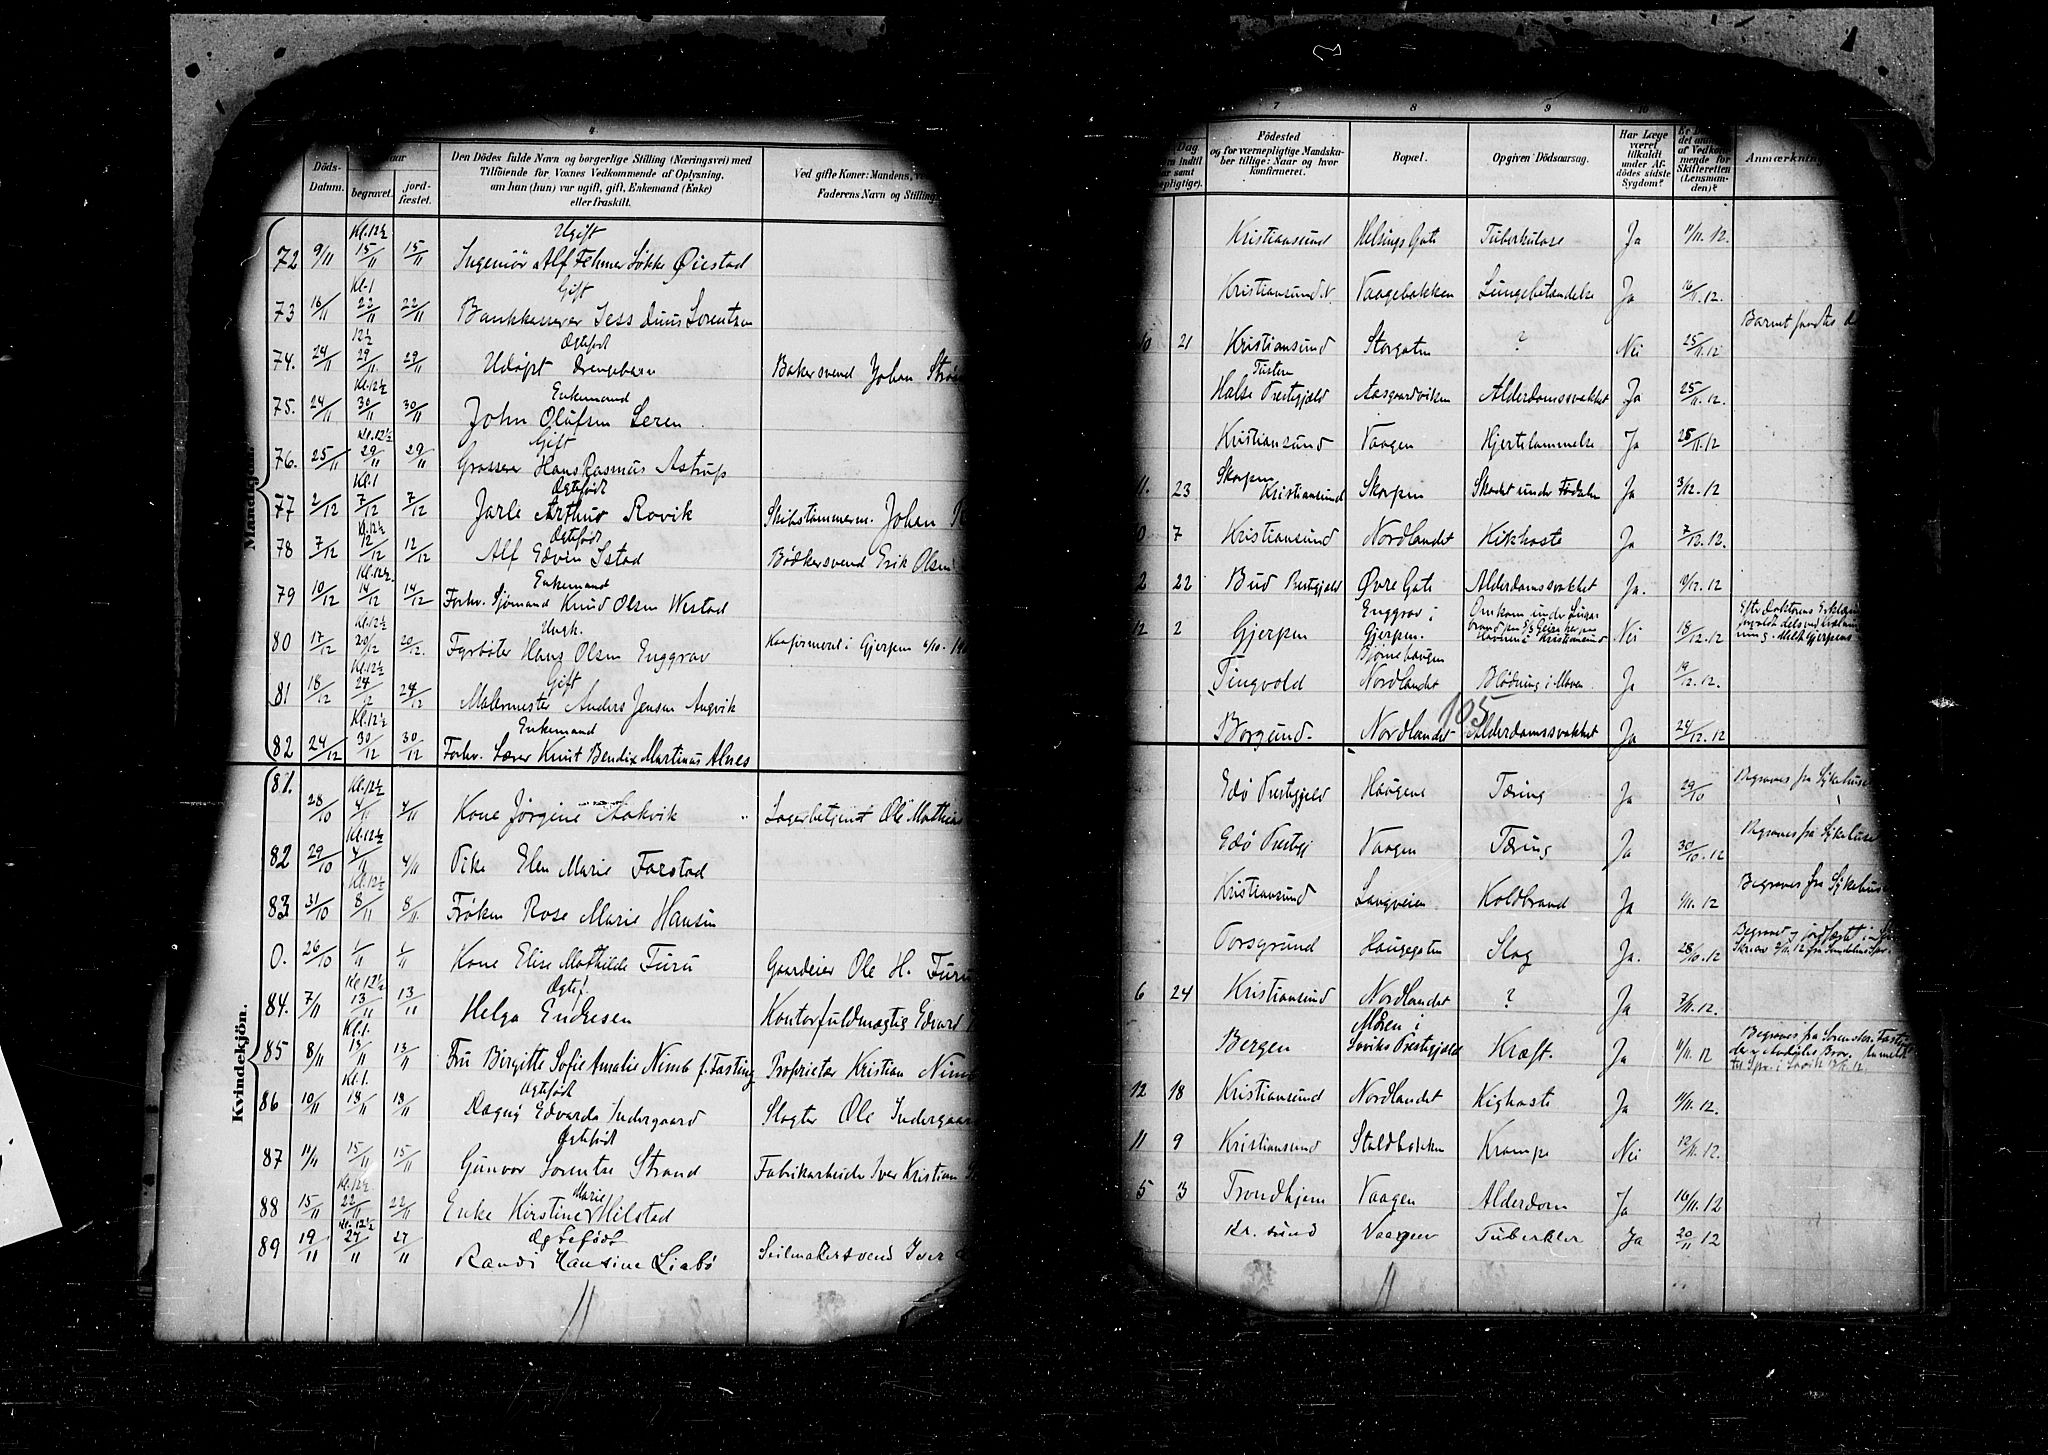 4
Döds-
Datum.
begravet.
jord-
fæstet.
Den Dödes fulde Navn og borgerlige Stilling (Næringsvei) med
Tilföiende for Voxnes Vedkommende af Oplysning,
om han (hun) var ugift, gift, Enkemand (Enke)
eller fraskilt.
Ved gifte Koner: Mandens,
Faderens Navn og Stilling
Mandkjön.
72 9/11 Kl. 12½ 15/11 15/11 Ugift
Ingeniör Alf Fehmer Løkke Øiestad
73 16/11 Kl. 1 22/11 22/11 Gift
Bankkasserer Jess Duus Lorentzen
74. 24/11 12½ 29/11 29/11 Ægtefødt
Udøpt Drengebarn Bakersvend Johan
75. 24/11 Kl. 12½ 30/11 30/11 Enkemand
John Olufsen Leren
76. 25/11 Kl. 12½ 29/11 29/11 Gift
Grosserer Hans Rasmus Astrup
77 2/12 Kl. 1 7/12 7/12 Ægtefødt
Jarle Arthur Rovik Skibstömmerm. Johan
78 7/12 Kl. 12½ 12/12 12/12 Ægtefødt
Alf Edvin Istad Bödkersvend Erik Olsen
79 10/12 Kl. 12½ 14/12 14/12 Enkemand
Forhv. Sjømand Knud Olsen Westad
80 17/12 Kl. 12½ 20/12 20/12. Ungk.
Fyrbøter Hans Olsen Enggrav Konfirmeret i Gjerpen
81 18/12 Kl. 12½ 24/12 24/12 Gift
Malermester Anders Jensen Angvik
82 24/12 Kl. 12½ 30/12 30/12 Enkemand
Forhv. Lærer Knut Bendix Martinus Alnes
Kvindekjön.
81. 28/10 Kl. 12½ 4/11 4/11 Kone Jørgine Aakvik Lagerbetjent Ole Mathias
82 29/10 Kl. 12½ 4/11 4/11 Pike Elen Marie Farstad
83 31/10 Kl. 12½ 8/11 8/11 Frøken Rose Marie Hansen
0. 26/10 1/11 1/11 Kone Elise Mathilde Furu Gaardeier Ole H. Furu
84. 7/11 Kl 12½ 13/11 13/11 Ægtef.
Helga Endresen Kontorfuldmægtig Edvard
85 8/11 Kl. 1. 13/11 13/11 Fru Birgitte Sofie Amalie Nimb f. Fasting Proprietær Kristian
86 10/11 Kl. 1. 18/11 18/11 Ægtefødt
Dagny Edvarda Indergaard Slagter Ole Indergaard
87 11/11 15/11 15/11 Ægtefødt
Gunvor Lorentse Strand Fabrikarbeider Iver Kristian
88 15/11 Kl. 12½ 22/11 22/11 Enke Kirstine Marie Hilstad
89 19/11 Kl. 12½ 27/11 27/11 Ægtefødt
Randi Hansine Liabø Seilmakersvend Iver
7
8
9
10
Dag
Födested
og for værnepligtige Mandska-
ber tillige: Naar og hvor
konfirmeret.
Bopæl.
Opgiven Dödsaarsag.
Har Læge
været
tilkaldt
under Af-
dödes sidste
Sygdom?
af Vedkom-
mende for
Skifteretten
(Lensman-
den)?
Anmærkning
Kristiansund Helsings Gate Tuberkulose Ja 11/11. 12.
Kristiansund N. Vaagebakken Lungebetændelse Ja 16/11. 12.
10 21 Kristiansund Storgaten ? Nei 25/11. 12 Barnet fandtes
Tustern
Halse Prestegjæld Aasgaardviken Alderdomssvakhet Ja 25/11. 12.
Kristiansund Vaagen Hjertelammelse Ja 28/11. 12
11. 23 Skorpen Kristiansund Skorpen Skadet under Fødselen Ja 3/12. 12
0 7 Kristiansund Nordlandet Kikhoste Ja 7/12. 12.
2 22 Bud Prestegjæld Øvre Gate Alderdomssvakhet Ja. 11/12. 12
12 2 Gjerpen Enggrav i Gjerpen. Omkom under Nei 18/12. 12 Efter Doktorens Erklæring
Tingvold Bjørnehaugen Nordlandet Blødning i Maven Ja 19/12. 12.
105
Borgund. Nordlandet Alderdomssvakhet Ja 24/12. 12
Edø Prestegjeld Haugene Tæring Ja 29/10 Begraves fra Sykehuset
Edø Prestegj Vaagen Tæring Ja 30/10. 12 Begraves fra Sykehuset
Kristiansund Langveien Koldbrand Ja 1/11. 12 Begraves fra Sykehuset
Porsgrund Haugegaten Slag Ja. 28/10. 12
6 24 Kristiansund Nordlandet ? Ja 7/11. 12.
Bergen Moen i Prestegjeld Kræft. Ja 11/11. 12
12 18 Kristiansund Nordlandet Kighoste Ja 11/11. 12.
11 9 Kristiansund Staldbakken Krampe Nei 12/11. 12.
5 3 Trondhjem Vaagen Alderdom Ja 16/11. 12
Kr. sund Vaagen Tuberkler Ja 20/11 12